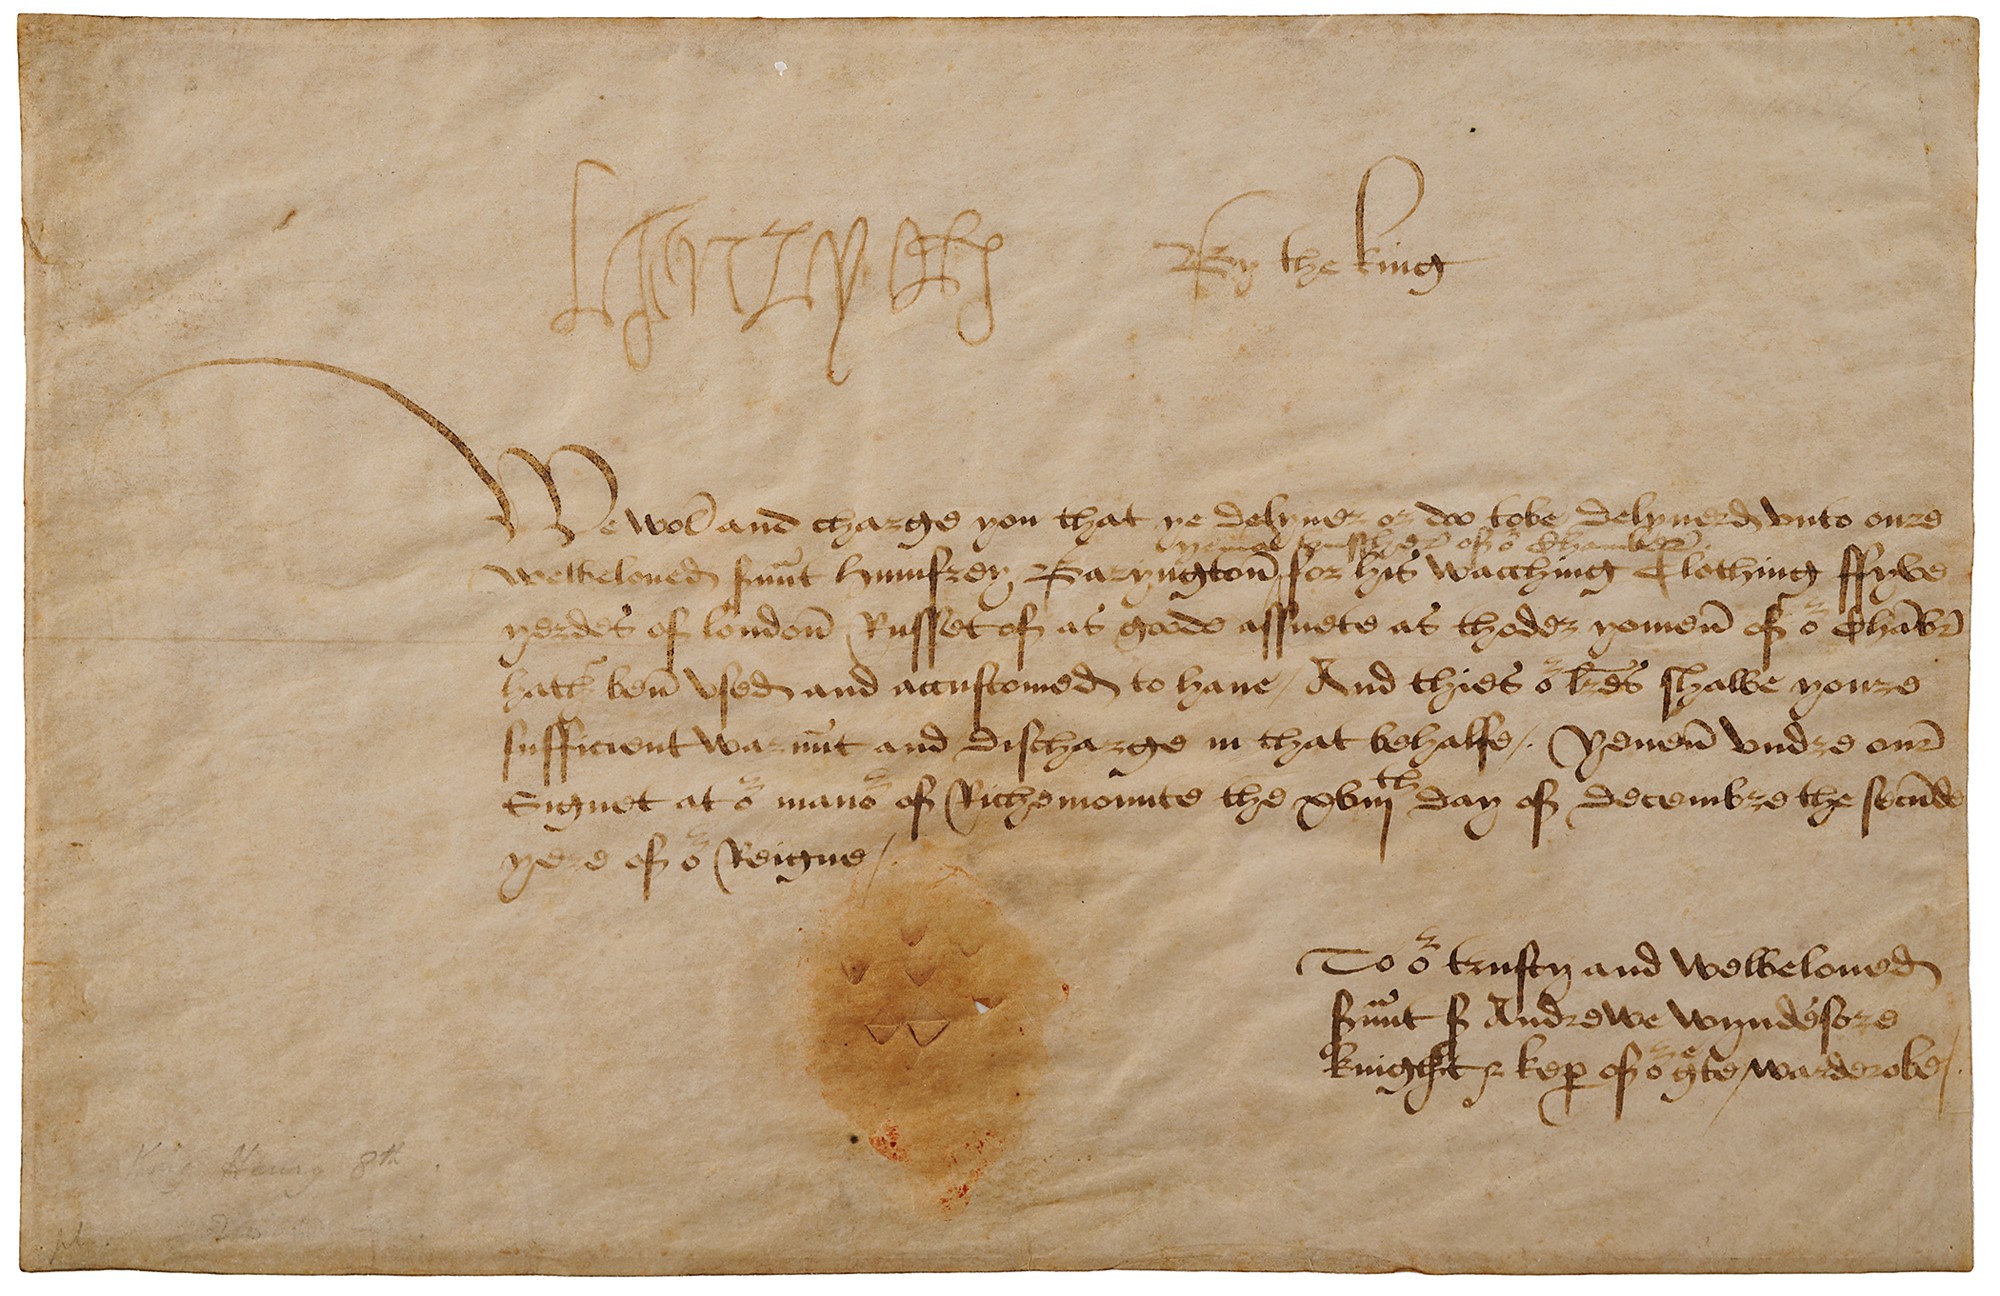 Henry R
By the king
We woll and charge you that ye delyuer or doo tobe delyuerd vnto oure
yoman huissher of oʳ Chambre
welbeloued ſuñt Humfrey Baryngton̄ for his wacching Clothing ffyve
yerdes of london̄ Russet of as goode assuete as thoder yomen̄ of oʳ Chābr̄
hath ben̄ vsed and accustomed to haue / And thies oʳ lr̄es shalbe youre
sufficient warañt and discharge in that behalfe /. Yeuen̄ vndre our̄
Signet at oʳ manoʳ of Richemounte the xviijth day of Decembre the secūde
yere of oʳ Reigne /.
To oʳ trusty and welbeloued
ſuñt sʳ Andrewe wyndesore
knight & kep of oʳ gᵉte warderobe /.
King Henry 8th